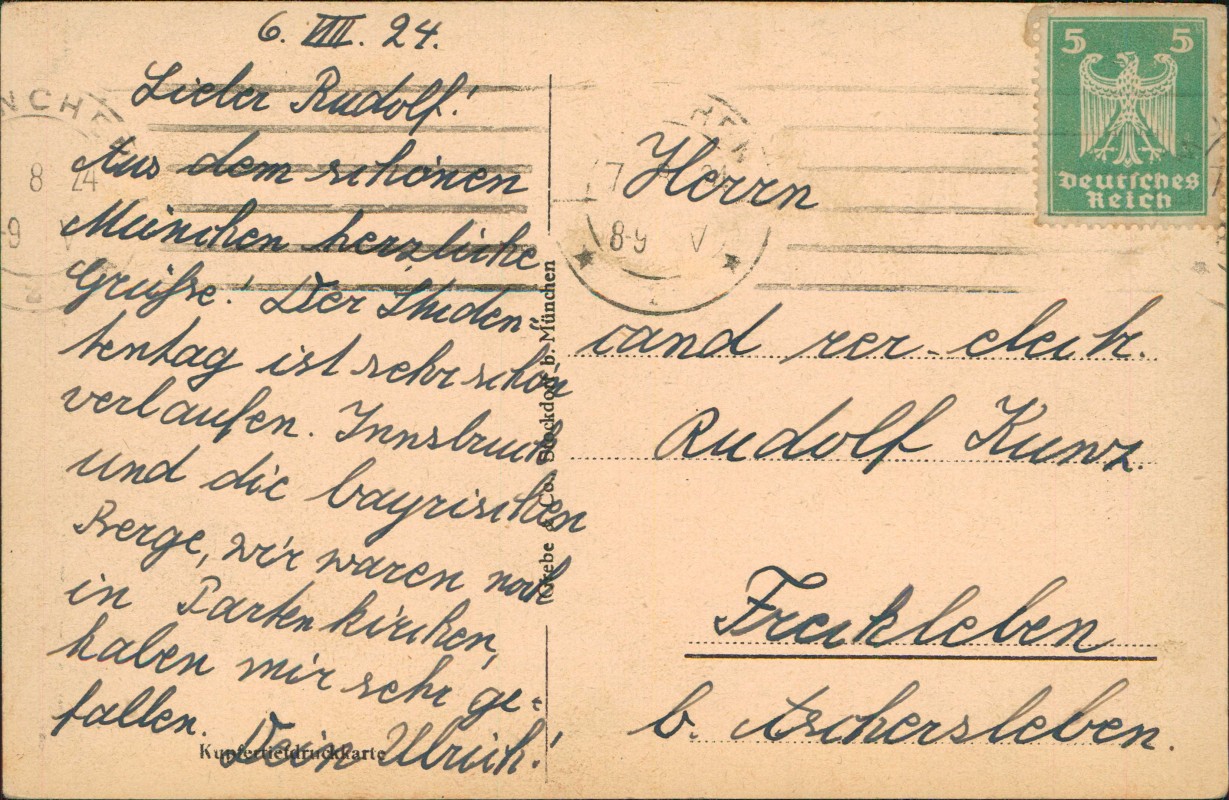 6. VIII. 24.
Lieber Rudolf!
Aus dem schönen
München herzliche
Grüße! Der Studen-
tentag ist sehr schön
verlaufen. Innsbruck
und die bayrischen
Berge, wir waren noch
in Partenkirchen,
haben mir sehr ge-
fallen. Dein Ulrich!
Kupfertiefdruckkarte
Co., Stockdorf b. München
NCHEN
8 24
9 V
7
8-9 V
5 5
Deutsches
Reich
Herrn
cand rer. elektr.
Rudolf Kunz.
Freckleben
b. Aschersleben.